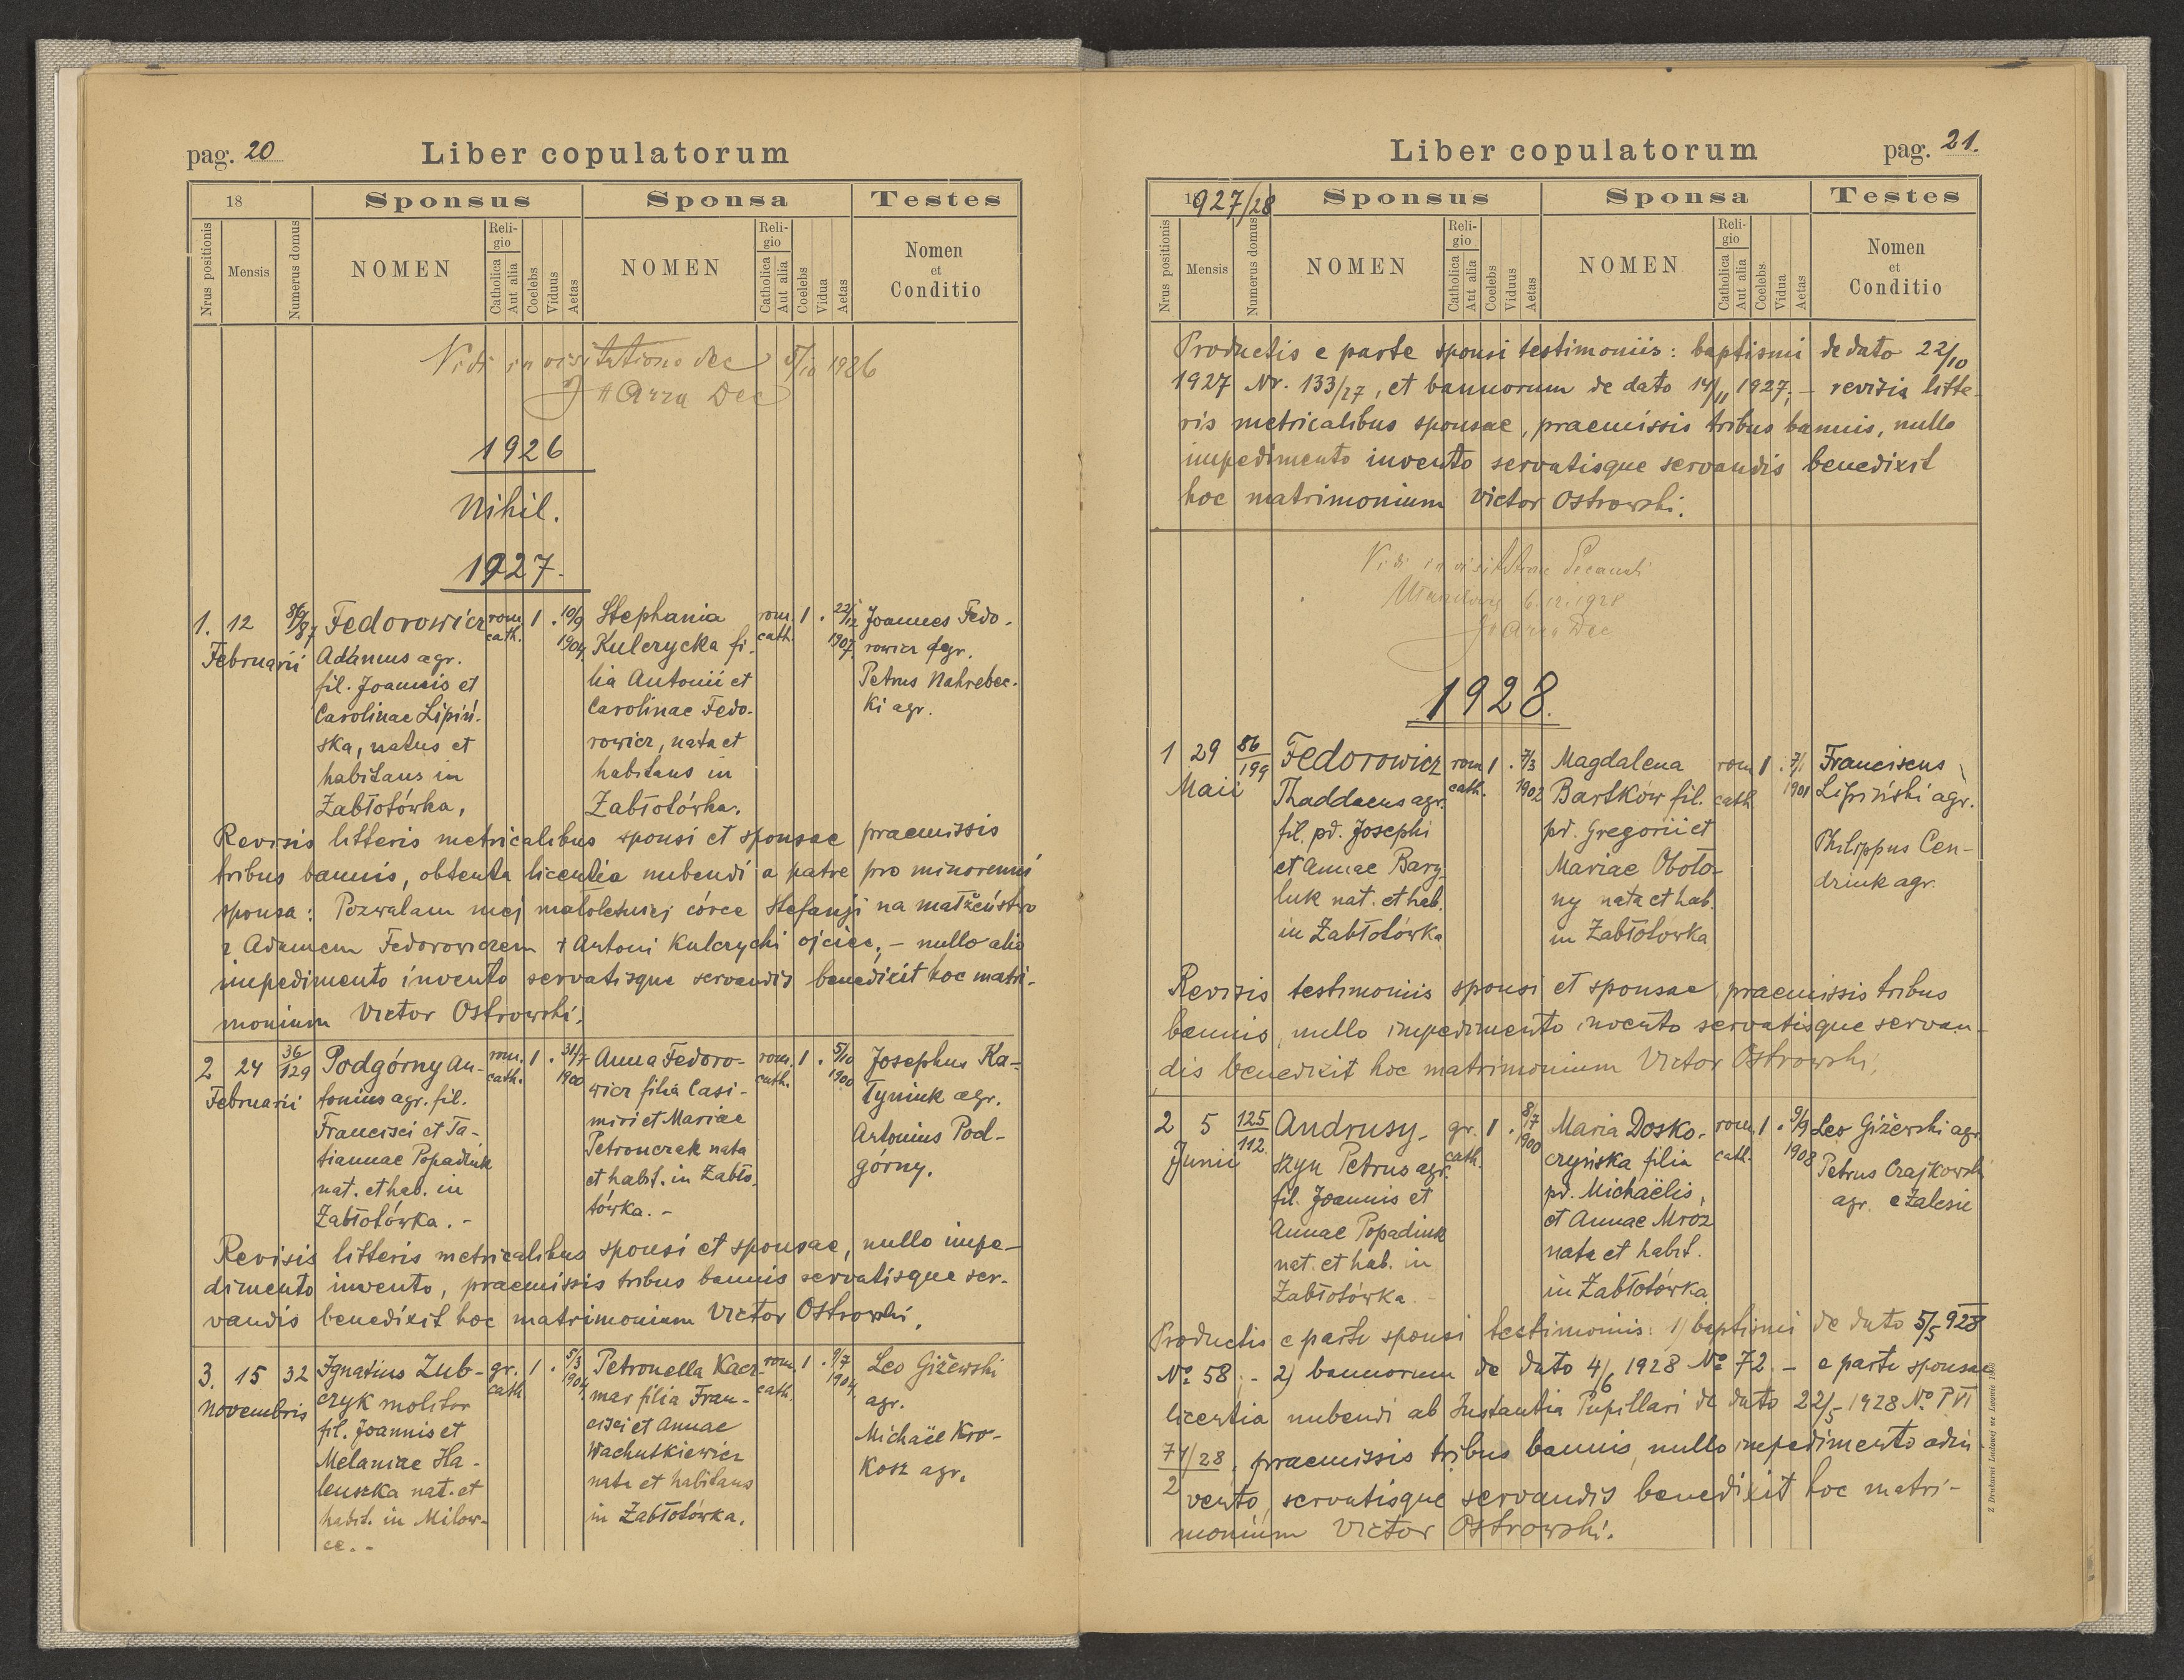 pag. 20
Liber copulatorum
18
Sponsus
Sponsa
Testes
Nrus positionis
Mensis
Numerus domus
NOMEN
Reli-
gio
Catholica
Aut alia
Coelebs
Viduus
Aetas
NOMEN
Reli-
gio
Catholica
Aut alia
Coelebs
Vidua
Aetas
Nomen
et
Conditio
Vidi in visitatione dec 5/10 1926
Dec
1926
Nihil.
1927.
1. 12
Februarii
Fedorowicz
Adamus agr.
fil. Joannis et
Carolinae Lipiń-
ska, natus et
habitans in
Zabłotówka,
rom.
cath.
1 .
10/9
1904
Stephania
Kulczycka fi-
lia Antonii et
Carolinae Fedo-
rowicz, nata et
habitans in
Zabłotówka.
rom.
cath.
1 .
22/12
1907.
Joannes Fedo-
rowicz agr.
Petrus Nahrebec-
ki agr.
Revisis litteris metricalibus sponsi et sponsae praemissis
tribus bannis, obtenta licentia nubendi a patre pro minorenni
sponsa: Pozwalam mej małoletniej córce Stefanji na małżeństwo
z Adamem Fedorowiczem + Antoni Kulczycki ojciec, - nullo alio
impedimento invento servatisque servandis benedixit hoc matri-
monium Victor Ostrowski.
2 24
Februarii
36/129
Podgórny An-
tonius agr. fil.
Francisci et Ta-
tiannae Popadiuk
nat. et hab. in
Zabłotówka. -
rom.
cath.
1 .
31/7
1900
Anna Fedoro-
wicz filia Casi-
miri et Mariae
Petronczak nata
et habit. in Zabło-
tówka. -
rom.
cath.
1 .
5/10
1900
Josephus Ka-
tyniuk agr.
Antonius Pod-
górny.
Revisis litteris metricalibus sponsi et sponsae, nullo impe-
dimento invento, praemissis tribus bannis servatisque ser-
vandis benedixit hoc matrimonium Victor Ostrowski.
3. 15
Novembris
32
Ignatius Zub-
czyk molitor
fil. Joannis et
Melaniae Ha-
luszka nat. et
habit. in Milow-
ce. -
gr.
cath
1 .
5/3
1904
Petronella Kacz-
mar filia Fran-
cisci et Annae
Wachutkiewicz
nata et habitans
in Zabłotówka.
rom.
cath.
1 .
9/7
1904
Leo Giżewski
agr.
Michaël Kro-
kosz agr.
Liber copulatorum
pag. 21.
1927/28
Sponsus
Sponsa
Testes
Nrus positionis
Mensis
Numerus domus
NOMEN
Reli-
gio
Catholica
Aut alia
Coelebs
Viduus
Aetas
NOMEN
Reli-
gio
Catholica
Aut alia
Coelebs
Vidua
Aetas
Nomen
et
Conditio
Productis e parte sponsi testimoniis: baptismi de dato 22/10
1927 Nr. 133/27, et bannorum de dato 14/11 1927; - revisis litte-
ris metricalibus sponsae, praemissis tribus bannis, nullo
impedimento invento servatisque servandis benedixit
hoc matrimonium Victor Ostrowski.
Vidi in visitatione Decanali
1928
Dec
1928.
1 29
Maii
86/199
Fedorowicz
Thaddaeus agr.
fil. pd. Josephi
et Annae Bary-
luk nat. et hab.
in Zabłotówka
rom
cath.
1 .
7/3
1902
Magdalena
Bartków fil.
pd. Gregorii et
Mariae Oboło-
ny nata et hab.
in Zabłotówka
rom
cath
1 .
7/1
1901
Franciscus
Lipiński agr.
Philippus Cen-
dziuk agr.
Revisis testimoniis sponsi et sponsae, praemissis tribus
bannis, nullo impedimento invento servatisque servan-
dis benedixit hoc matrimonium Victor Ostrowski.
2 5
Junii
125/112
Andrusy-
szyn Petrus agr.
fil. Joannis et
Annae Popadiuk
nat. et hab. in
Zabłotówka. -
gr.
cath.
1 .
8/7
1900
Maria Dosko-
czyńska filia
pd. Michaëlis,
et Annae Mróz
nata et habit.
in Zabłotówka
rom.
cath.
1 .
9/9
1908
Leo Giżewski agr.
Petrus Czajkowski
agr. e Zalesie
Productis e parte sponsi testimoniis: 1) baptismi de dato 5/5 928
No 58. - 2) bannorum de dato 4/6 1928 No 72. - e parte sponsae
licentia nubendi ab Instantia Pupillari de dato 22/5 1928 No P VI
74/28
2
, praemissis tribus bannis, nullo impedimento adin-
vento, servatisque servandis benedixit hoc matri-
monium Victor Ostrowski.
Z Drukarni Ludowej we Lwowie